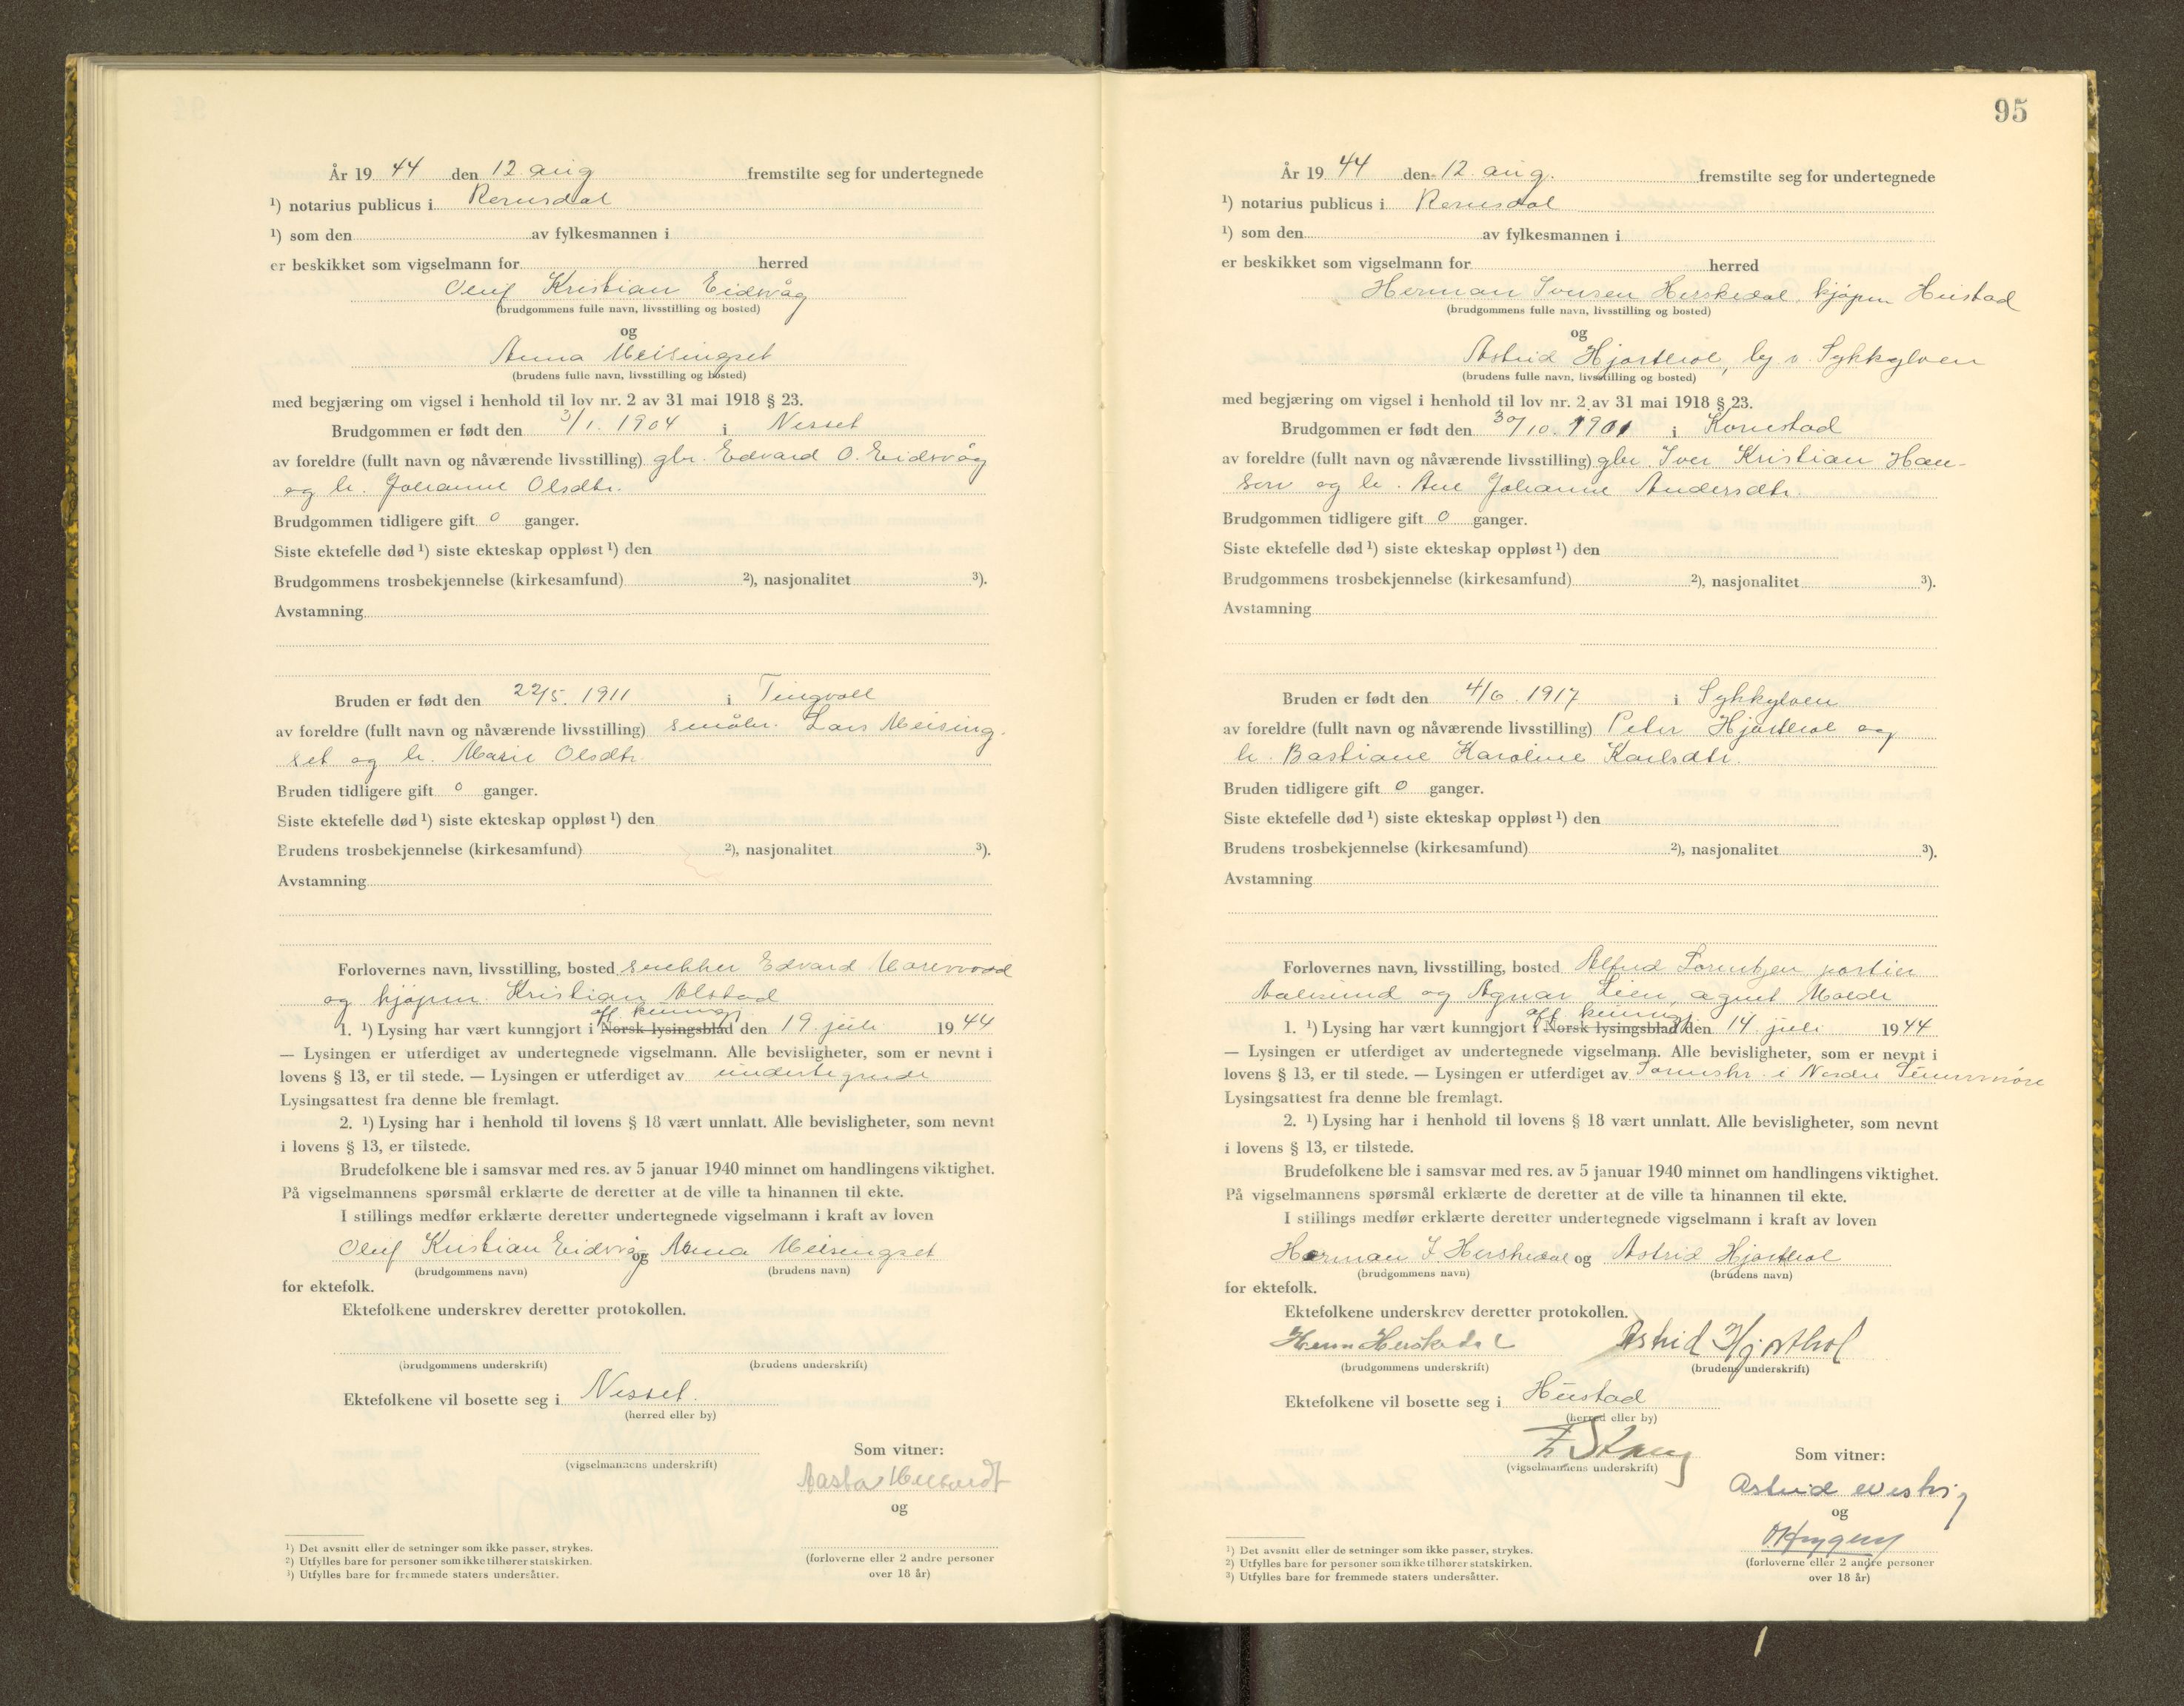 År 19 44 den 12 aug fremstilte seg for undertegnede
¹) notarius publicus i Romsdal
¹) som den av fylkesmannen i
er beskikket som vigselmann for herred
Oluf Kristian Eidsvåg
(brudgommens fulle navn, livsstilling og bosted)
og
Anna Meisingset
(brudens fulle navn, livsstilling og bosted)
med begjæring om vigsel i henhold til lov nr. 2 av 31 mai 1918 § 23.
Brudgommen er født den 3/1. 1904 i Nesset
av foreldre (fullt navn og nåværende livsstilling) gbr. Edvard O. Eidsvåg
og h. Johanne Olsdtr.
Brudgommen tidligere gift 0 ganger.
Siste ektefelle død ¹) siste ekteskap oppløst ¹) den
Brudgommens trosbekjennelse (kirkesamfund) ²), nasjonalitet ³).
Avstamning
Bruden er født den 22/5. 1911 i Tingvoll
av foreldre (fullt navn og nåværende livsstilling) småbr. Lars Meising-
set og h. Marie Olsdtr.
Bruden tidligere gift 0 ganger.
Siste ektefelle død ¹) siste ekteskap oppløst ¹) den
Brudens trosbekjennelse (kirkesamfund) ²), nasjonalitet ³).
Avstamning
Forlovernes navn, livsstilling, bosted snekker Edvard
og kjøpm. Kristian Alstad
off. kunngj.
1. ¹) Lysing har vært kunngjort i Norsk lysingsblad den 19. juli 19 44
— Lysingen er utferdiget av undertegnede vigselmann. Alle bevisligheter, som er nevnt i
lovens § 13, er til stede. — Lysingen er utferdiget av undertegnede
Lysingsattest fra denne ble fremlagt.
2. ¹) Lysing har i henhold til lovens § 18 vært unnlatt. Alle bevisligheter, som nevnt
i lovens § 13, er tilstede.
Brudefolkene ble i samsvar med res. av 5 januar 1940 minnet om handlingens viktighet.
På vigselmannens spørsmål erklærte de deretter at de ville ta hinannen til ekte.
I stillings medfør erklærte deretter undertegnede vigselmann i kraft av loven
Oluf Kristian Eidsvåg og Anna Meisingset
(brudgommens navn) (brudens navn)
for ektefolk.
Ektefolkene underskrev deretter protokollen.
(brudgommens underskrift) (brudens underskrift)
Ektefolkene vil bosette seg i Nesset.
(herred eller by)
Som vitner:
(vigselmannens underskrift)
Aasta
og
(forloverne eller 2 andre personer
over 18 år)
¹) Det avsnitt eller de setninger som ikke passer, strykes.
²) Utfylles bare for personer som ikke tilhører statskirken.
³) Utfylles bare for fremmede staters undersåtter.
95
År 19 44 den 12. aug. fremstilte seg for undertegnede
¹) notarius publicus i Romsdal
¹) som den av fylkesmannen i
er beskikket som vigselmann for herred
Herman Iversen Herskedal, kjøpm Hustad
(brudgommens fulle navn, livsstilling og bosted)
og
Astrid Hjorthol, by v. Sykkylven
(brudens fulle navn, livsstilling og bosted)
med begjæring om vigsel i henhold til lov nr. 2 av 31 mai 1918 § 23.
Brudgommen er født den 30/10. 1901 i Kornstad
av foreldre (fullt navn og nåværende livsstilling) gbr. Iver Kristian Han-
sen og h. Ane Johanne Andersdtr.
Brudgommen tidligere gift 0 ganger.
Siste ektefelle død ¹) siste ekteskap oppløst ¹) den
Brudgommens trosbekjennelse (kirkesamfund) ²), nasjonalitet ³).
Avstamning
Bruden er født den 4/6. 1917 i Sykkylven
av foreldre (fullt navn og nåværende livsstilling) Peter Hjorthol og
h. Bastiane Karoline Karlsdtr.
Bruden tidligere gift 0 ganger.
Siste ektefelle død ¹) siste ekteskap oppløst ¹) den
Brudens trosbekjennelse (kirkesamfund) ²), nasjonalitet ³).
Avstamning
Forlovernes navn, livsstilling, bosted Alfred Lorentzen portier
Aalesund og Agnar Lien, agent Molde
off. kunngj.
1. ¹) Lysing har vært kunngjort i Norsk lysingsblad den 14. juli 19 44
— Lysingen er utferdiget av undertegnede vigselmann. Alle bevisligheter, som er nevnt i
lovens § 13, er til stede. — Lysingen er utferdiget av Sorenskr. i Nordre Sunnmøre
Lysingsattest fra denne ble fremlagt.
2. ¹) Lysing har i henhold til lovens § 18 vært unnlatt. Alle bevisligheter, som nevnt
i lovens § 13, er tilstede.
Brudefolkene ble i samsvar med res. av 5 januar 1940 minnet om handlingens viktighet.
På vigselmannens spørsmål erklærte de deretter at de ville ta hinannen til ekte.
I stillings medfør erklærte deretter undertegnede vigselmann i kraft av loven
Herman I. Herskedal og Astrid Hjorthol
(brudgommens navn) (brudens navn)
for ektefolk.
Ektefolkene underskrev deretter protokollen.
Herm Herskedal Astrid Hjorthol
(brudgommens underskrift) (brudens underskrift)
Ektefolkene vil bosette seg i Hustad
(herred eller by)
Som vitner:
(vigselmannens underskrift)
Astrid
og
(forloverne eller 2 andre personer
over 18 år)
¹) Det avsnitt eller de setninger som ikke passer, strykes.
²) Utfylles bare for personer som ikke tilhører statskirken.
³) Utfylles bare for fremmede staters undersåtter.